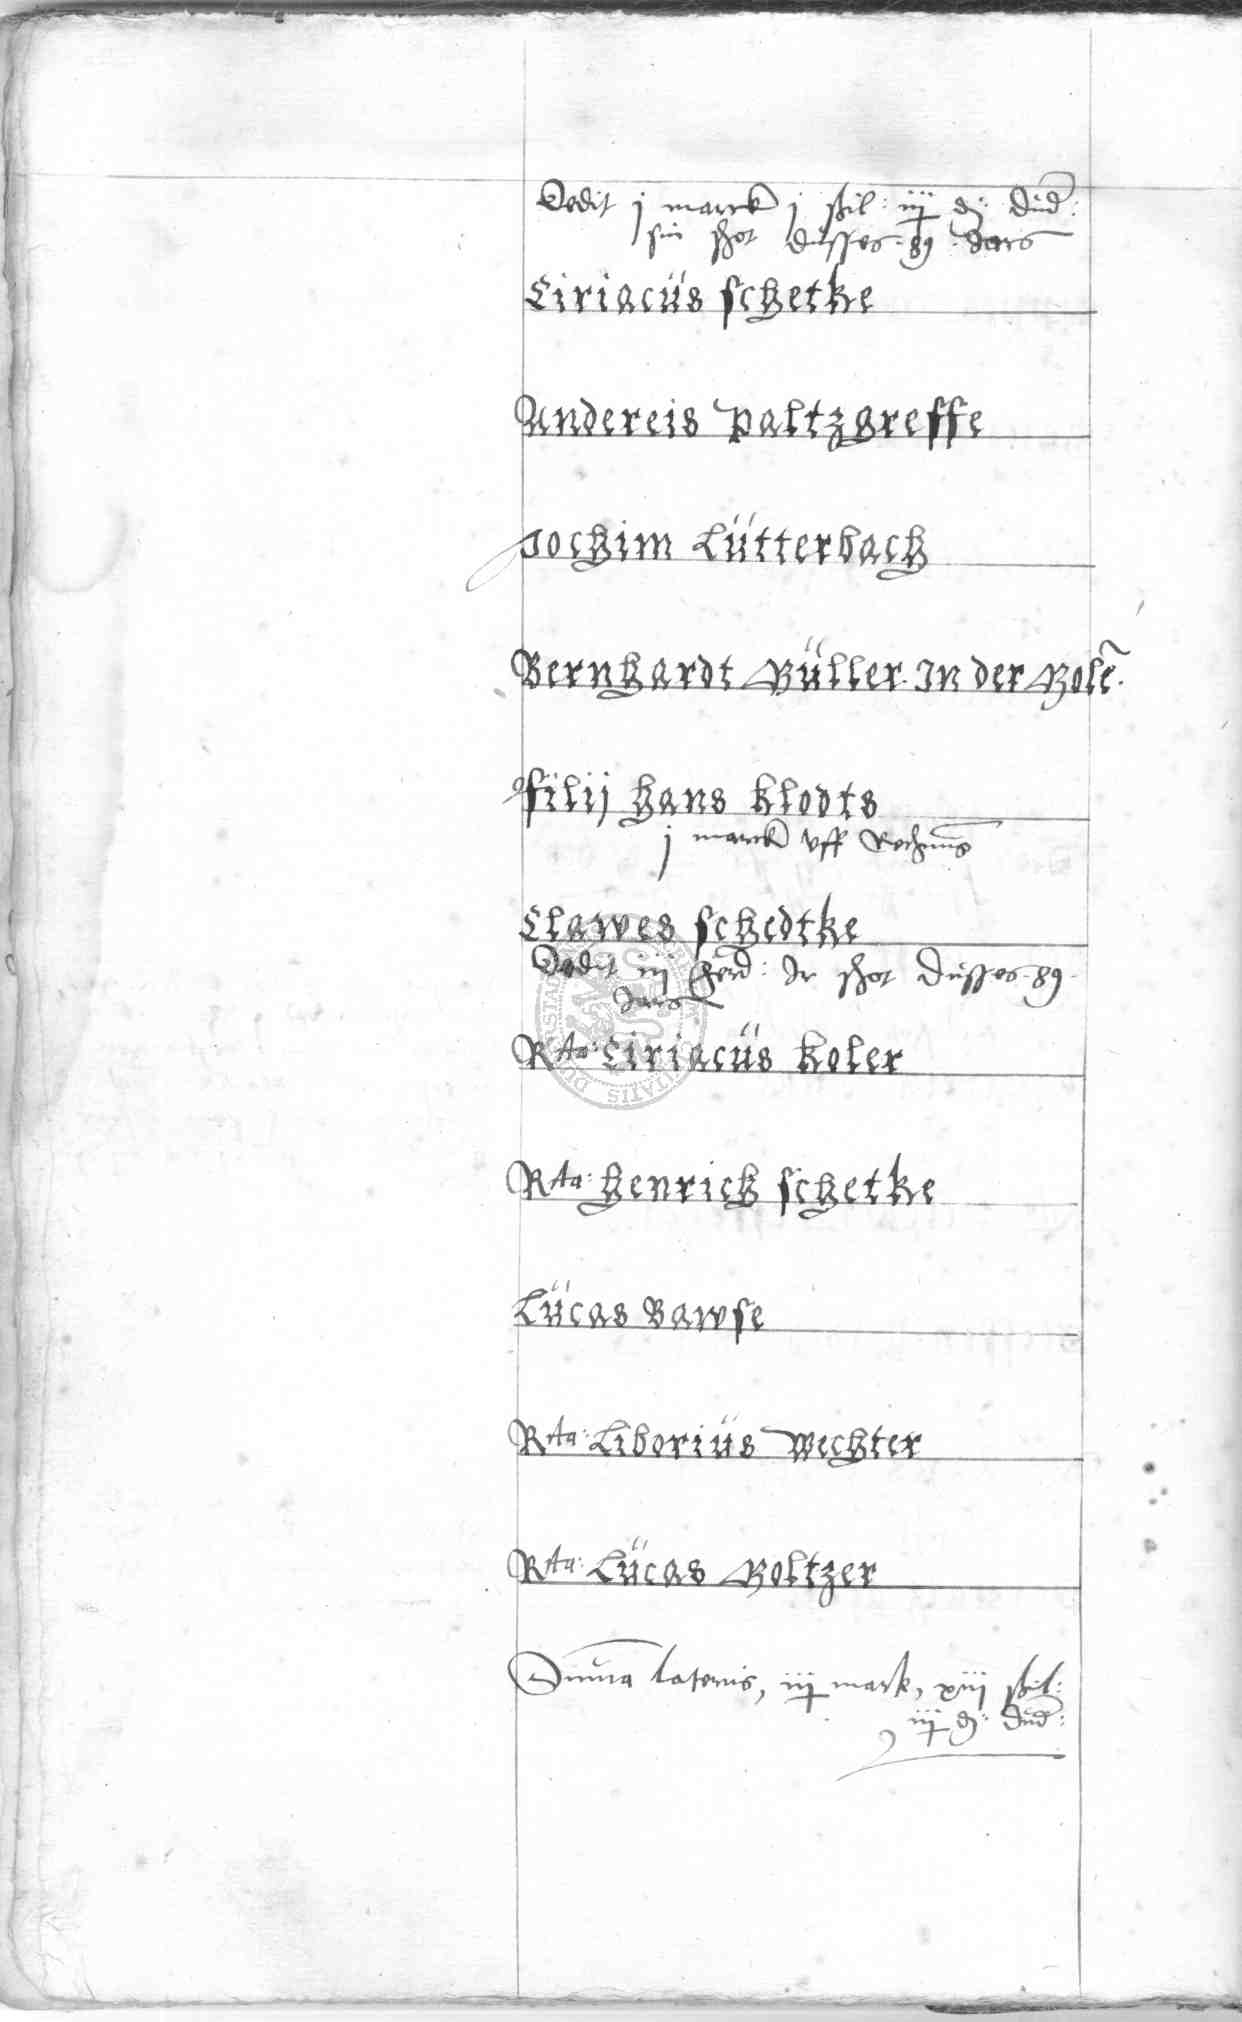 Dedit j marck j ßil: iiij d: Dud:
sin schot dusses .89. Jars
Ciriacüs schetke
Andereis paltzgreffe
Jochim Lütterbach
Bernhardt Müller. In der Molē.
filij hans klodts
j marck vff Rechnung
Clawes schedtke
Dedit iij ferd: Ir schot dusses .89.
Jars
Rta: Ciriacüs koler
Rta: henrich schetke
Lücas Bawse
Rta: Liboriüs wechter
Rta: Lücas Moltzer
Suma lateris, iiij mark, xiij ßil:
iiij d: Dud: